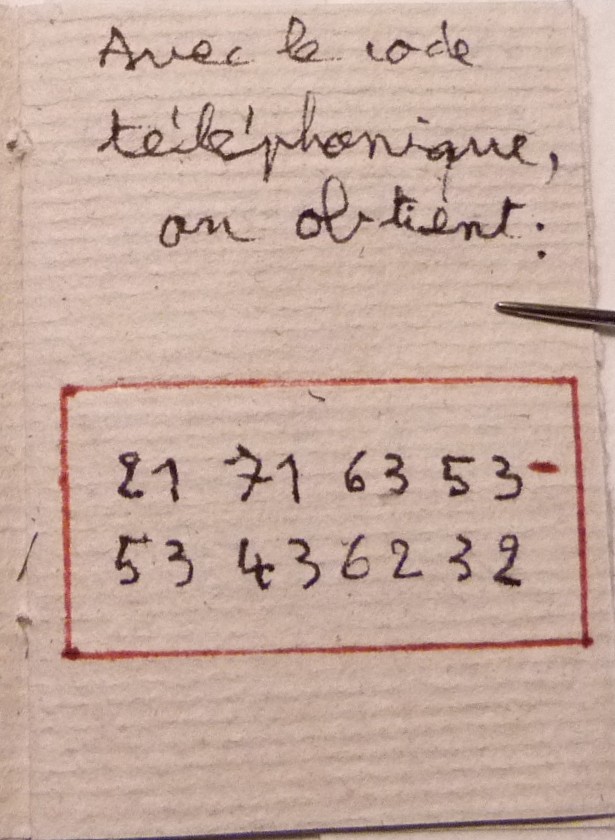 Avec le code
téléphonique,
on obtient:
21 71 63 53-
53 43 62 32